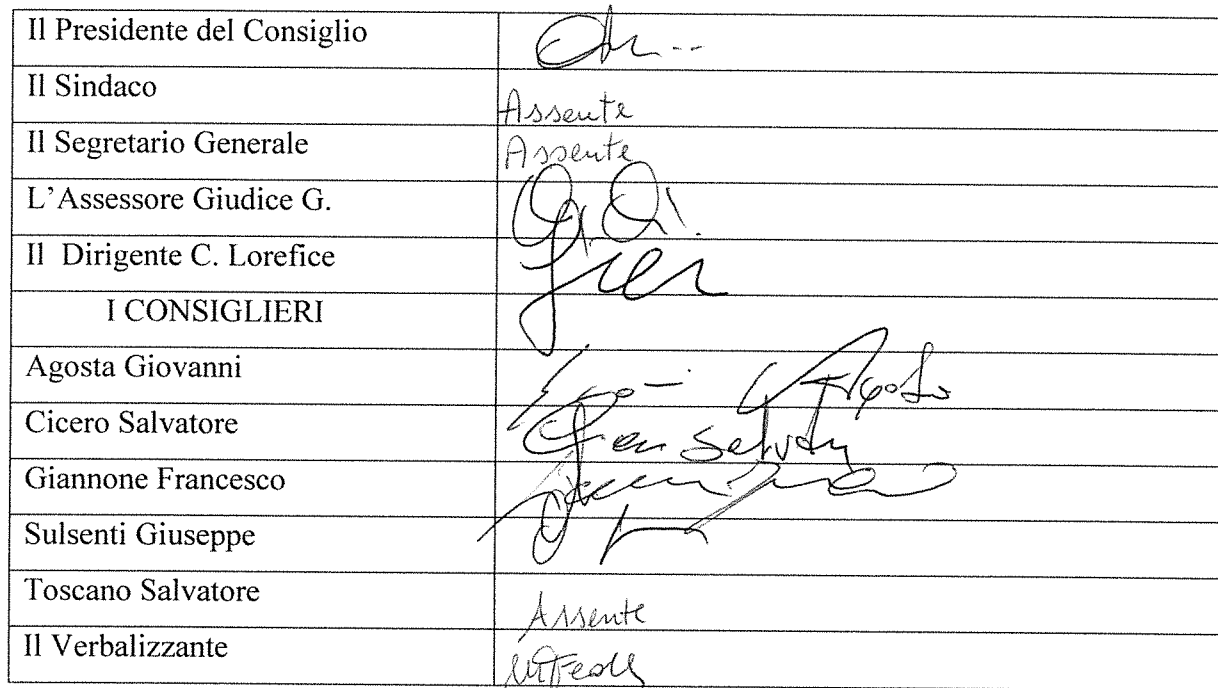 Il Presidente del Consiglio
Il Sindaco Assente
Il Segretario Generale Assente
L'Assessore Giudice G.
Il Dirigente C. Lorefice
I CONSIGLIERI
Agosta Giovanni
Cicero Salvatore
Giannone Francesco
Sulsenti Giuseppe
Toscano Salvatore Assente
Il Verbalizzante